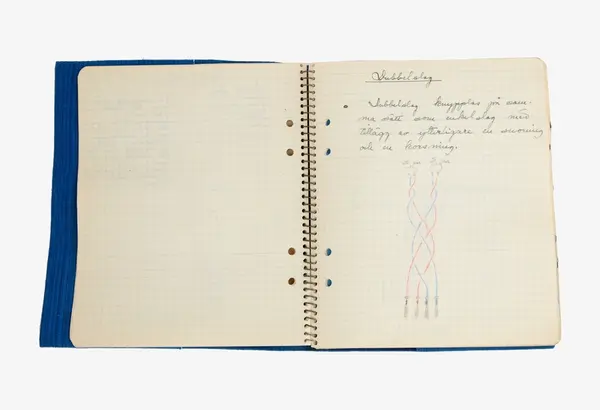 Dubbelslag
Dubbelslag knypplas på sam-
ma sätt som enkelslag med
tillägg av ytterligare en snoning
och en korsning.